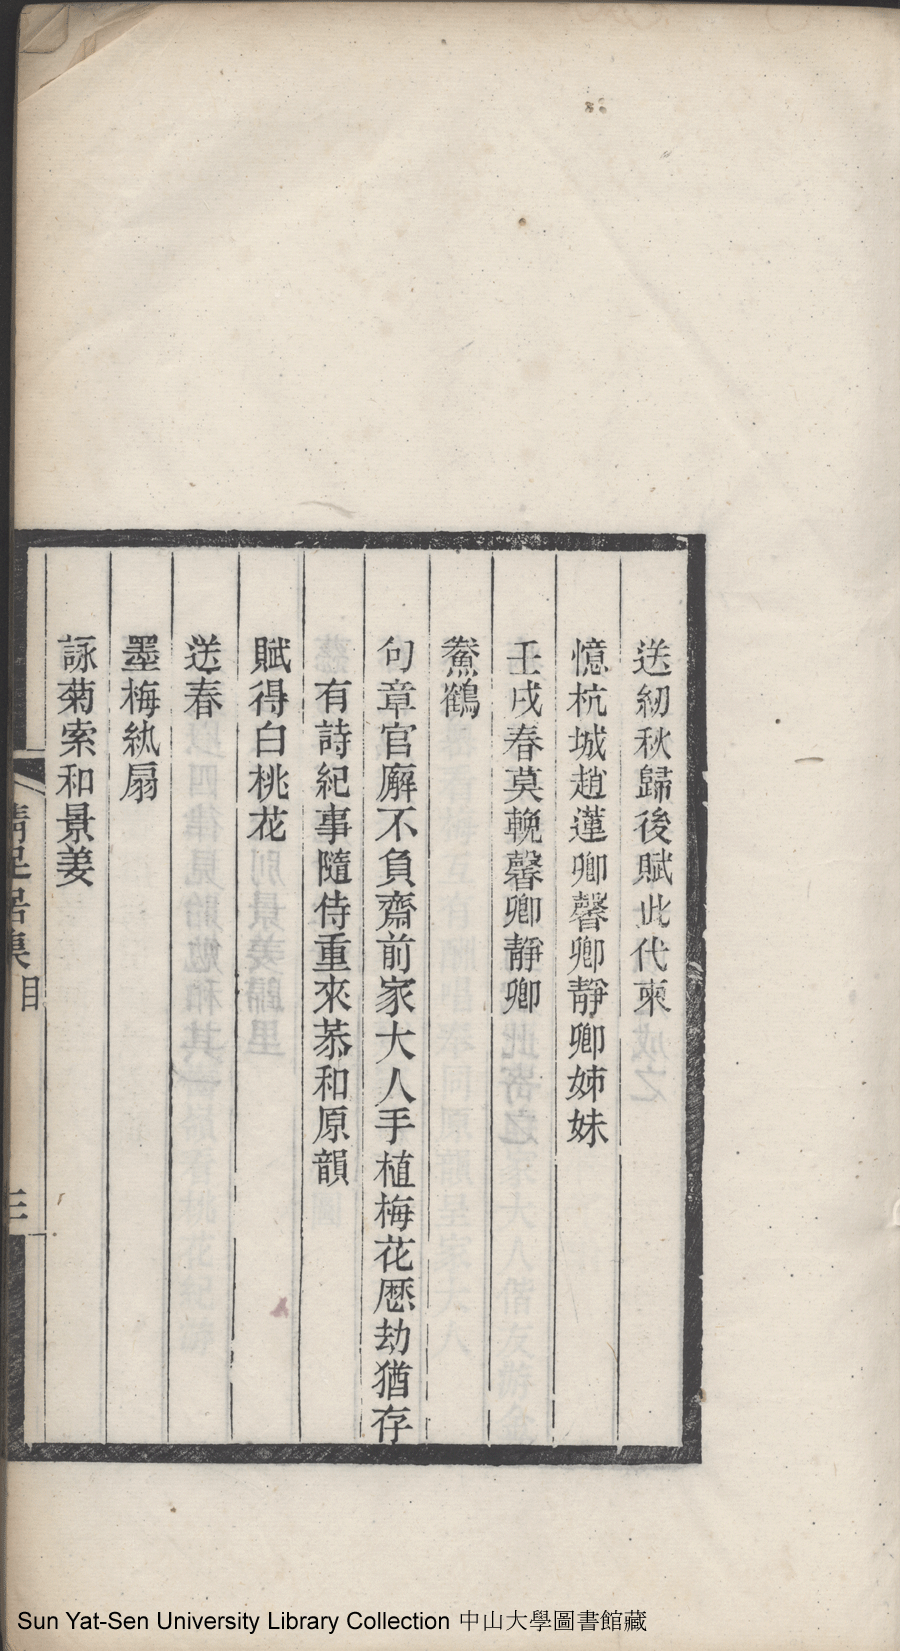 送紉秋歸後賦此代柬
憶杭城趙蓮卿馨卿靜卿姊妹
壬戌春莫輓馨卿靜卿
鶱鶴
句章官廨不負齋前家大人手植梅花歷劫猶存
有詩紀事隨侍重來恭和原韻
賦得白桃花
送春
墨梅紈扇
詠菊索和景姜
清足居集 目
三
Sun Yat-Sen University Library Collection 中山大學圖書館藏